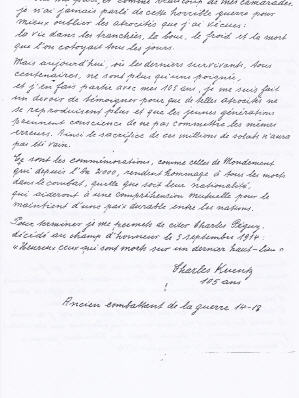 je n'ai jamais parlé de cette horrible guerre pour
mieux oublier les atrocités que j'ai vécues:
la vie dans les tranchées, la boue, le froid et la mort
que l'on cotoyait tous les jours.
Mais aujourd'hui, où les derniers survivants, tous
centenaires, ne sont plus qu'une poignée
et j'en fais partie avec mes 105 ans, je me suis fait
un devoir de témoigner pour que de telles atrocités ne
se reproduisent plus et que les jeunes générations
prennent conscience de ne pas commettre les mêmes
erreurs. Ainsi le sacrifice de ces millions de soldats n'aura
pas été vain.
sont les commémorations, comme celles de Mondement
qui depuis l'an 2000, rendent hommage à tous les morts
dans le combat, quelle que soit leur nationalité,
qui aideront à une compréhension mutuelle pour le
maintient d'une paix durable entre les nations.
Pour terminer je me permets de citer Charles Péguy,
décédé au champ d'honneur le 5 septembre 1914:
"Heureux ceux qui sont morts sur un dernier haut-lieu"
Charles Kuentz
105 ans
Ancien combattant de la guerre 14-18